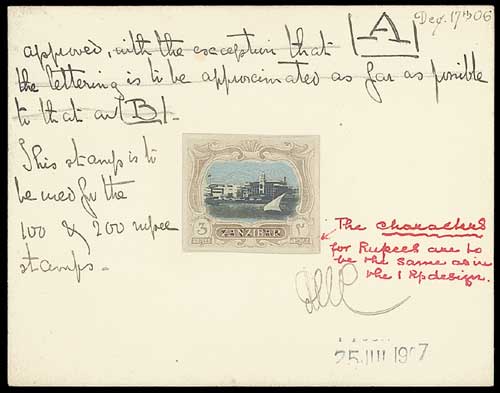 Dec. 17th 06
|A|
approved, with the exception that
the lettering is to be approximated as far as possible
to that on |B|.
This stamp is to
be used for the
100 & 200 rupee
stamps.
3
ZANZIBAR
The characters
for Rupees are to
be the same as in
the 1 Rp design.
25 JUL 1907